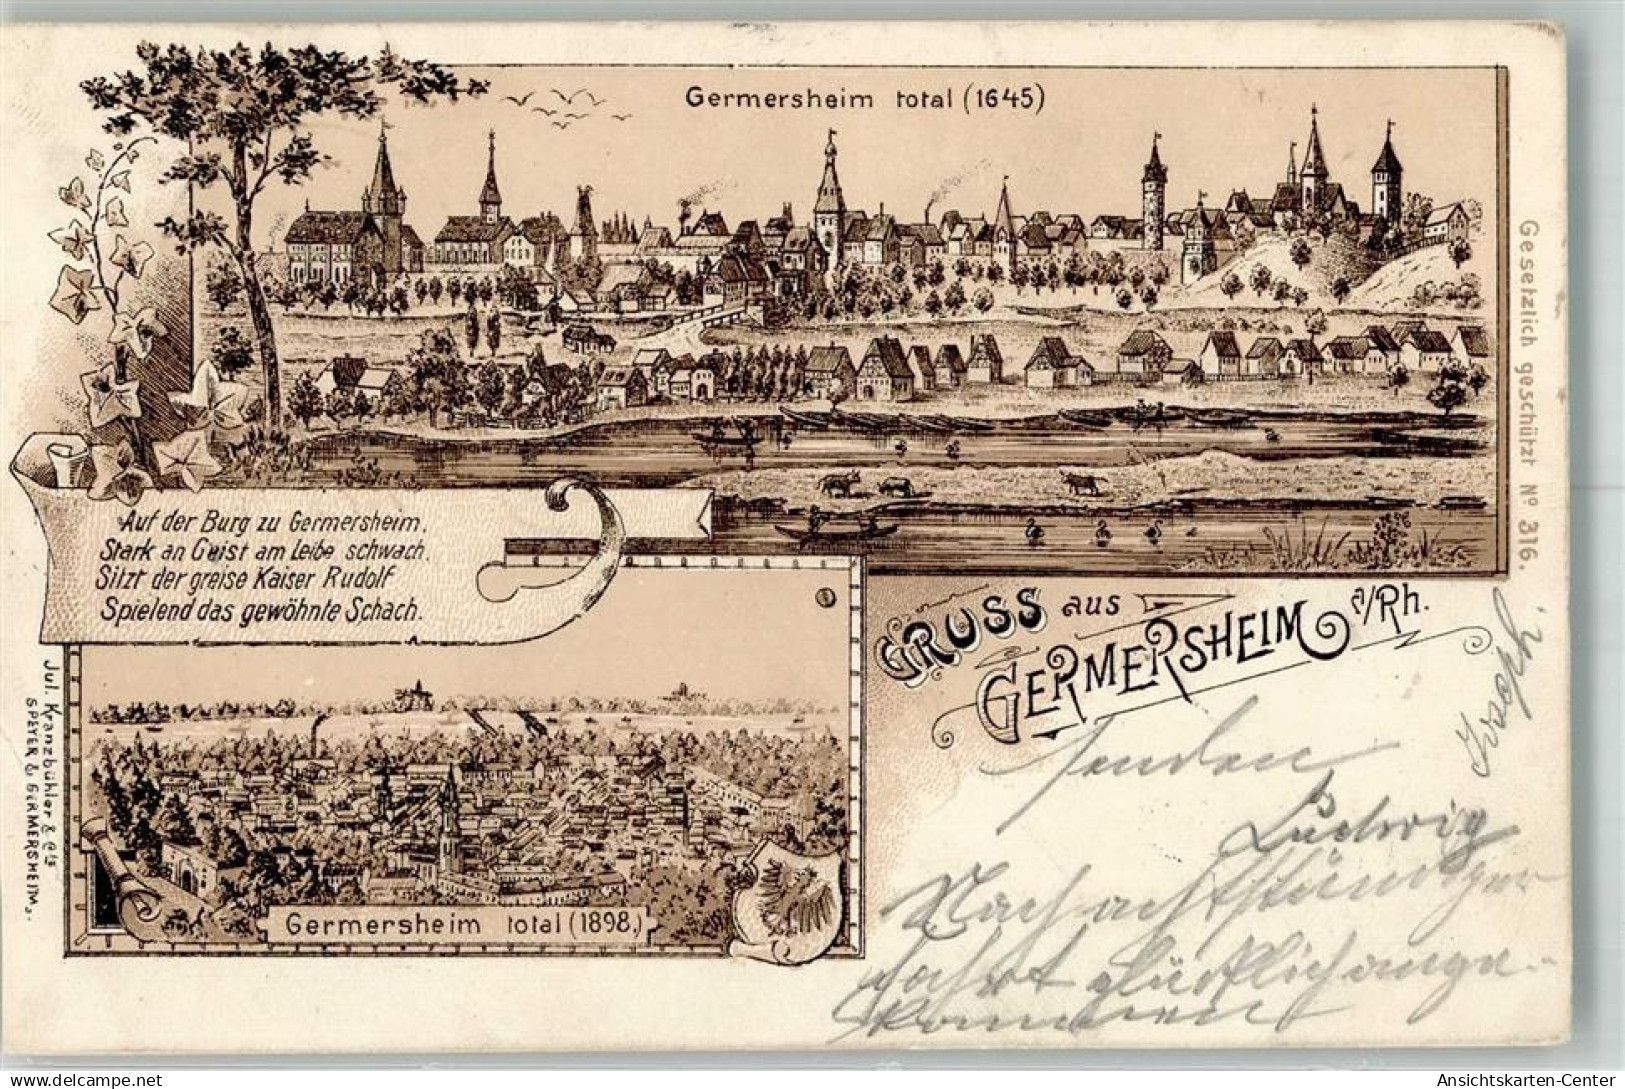 Germersheim total (1645)
Auf der Burg zu Germersheim,
Stark an Geist am Leibe schwach,
Sitzt der greise Kaiser Rudolf
Spielend das gewöhnte Schach.
GRUSS aus
GERMERSHEIM a/Rh.
Germersheim total (1898.)
Jul. Kranzbühler & Cie
SPEYER & GERMERSHEIM.
Gesetzlich geschützt No 316.
senden
Ludwig
Joseph.
Nach achtstündiger
Fahrt glücklich ange-
kommen
delcampe.net
Ansichtskarten-Center